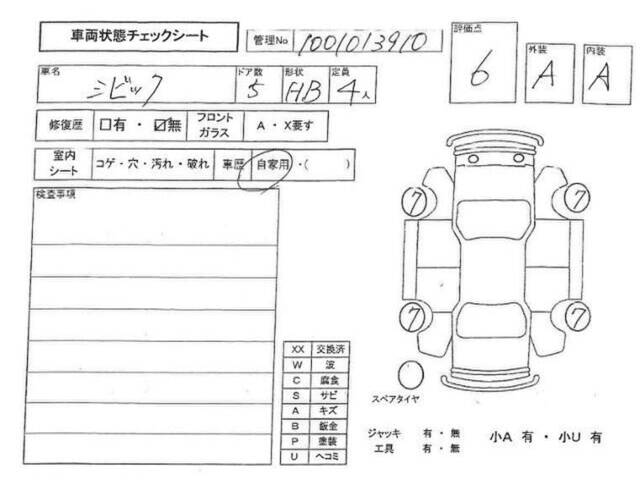 車両状態チェックシート 管理No 1001013910
評価点 6
外装 A
内装 A
車名 シビック
ドア数 5
形状 HB
定員 4人
修復歴 □有・☑無 フロントガラス A・X要す
室内シート コゲ・穴・汚れ・破れ 車歴 自家用・( )
検査事項
7 7
7 7
スペアタイヤ
XX 交換済
W 波
C 腐食
S サビ
A キズ
B 鈑金
P 塗装
U ヘコミ
ジャッキ 有・無
工具 有・無
小A 有・小U 有